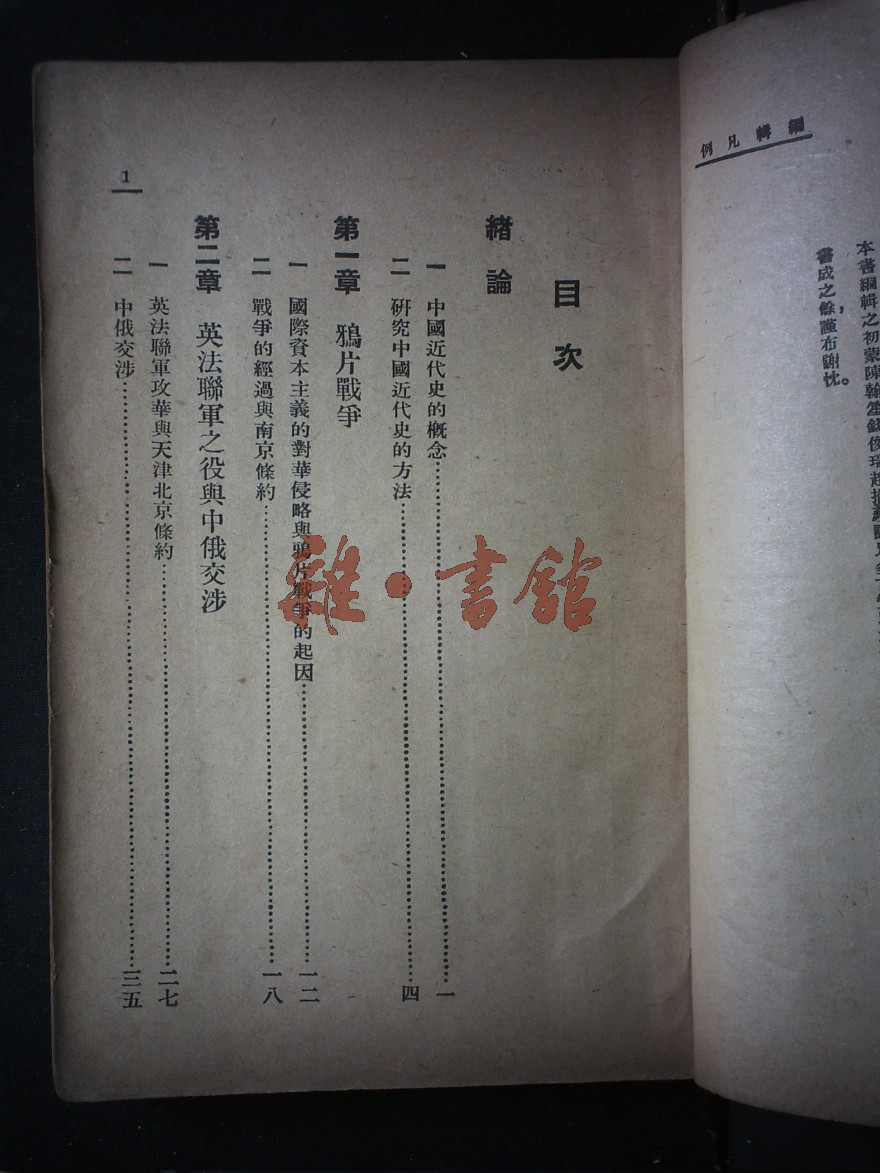 編輯凡例
本書編輯之初蒙陳翰笙錢俊瑞
書成之餘，謹布謝忱。
目次
緒論
一 中國近代史的概念……一
二 研究中國近代史的方法……四
第一章 鴉片戰爭
一 國際資本主義的對華侵略與鴉片戰爭的起因……一二
二 戰爭的經過與南京條約……一八
第二章 英法聯軍之役與中俄交涉
一 英法聯軍攻華與天津北京條約……二七
二 中俄交涉……三五
1
雜·書館